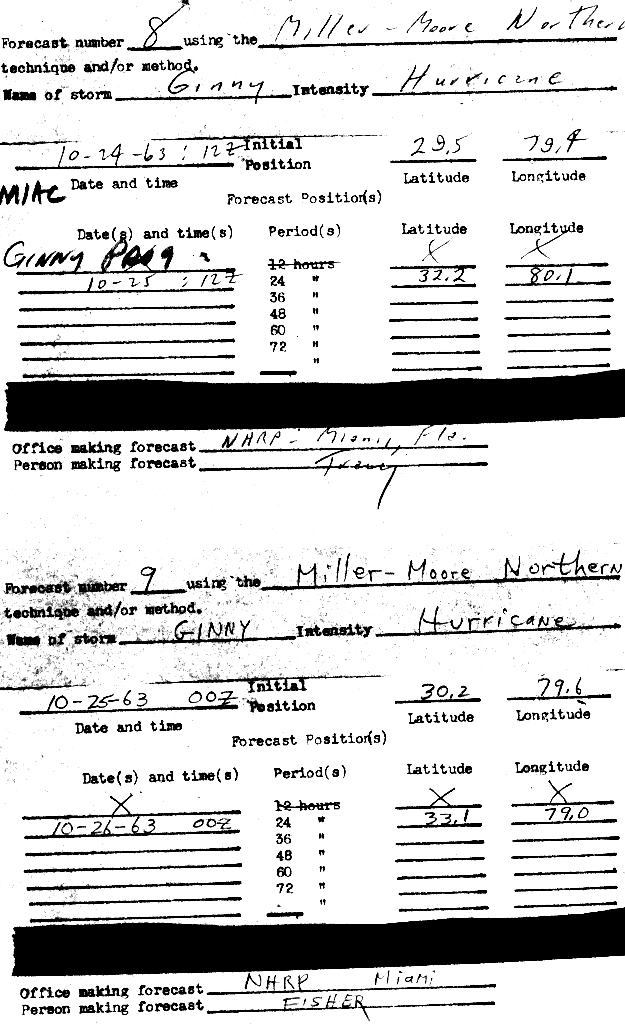 Forecast number 8 using the Miller-Moore Northern
technique and/or method.
Name of storm Ginny Intensity Hurricane
10-24-63 : 12Z Initial Position 29.5 79.4
MIAC Date and time Latitude Longitude
Forecast Position(s)
Date(s) and time(s) Period(s) Latitude Longitude
GINNY X X
12 hours
10-25 : 12Z 24 " 32.2 80.1
36 "
48 "
60 "
72 "
"
Office making forecast NHRP - Miami, Fla.
Person making forecast
Forecast number 9 using the Miller-Moore Northern
technique and/or method.
Name of storm GINNY Intensity Hurricane
10-25-63 00Z Initial Position 30.2 79.6
Date and time Latitude Longitude
Forecast Position(s)
Date(s) and time(s) Period(s) Latitude Longitude
X 12 hours X X
10-26-63 00Z 24 " 33.1 79.0
36 "
48 "
60 "
72 "
"
Office making forecast NHRP Miami
Person making forecast FISHER